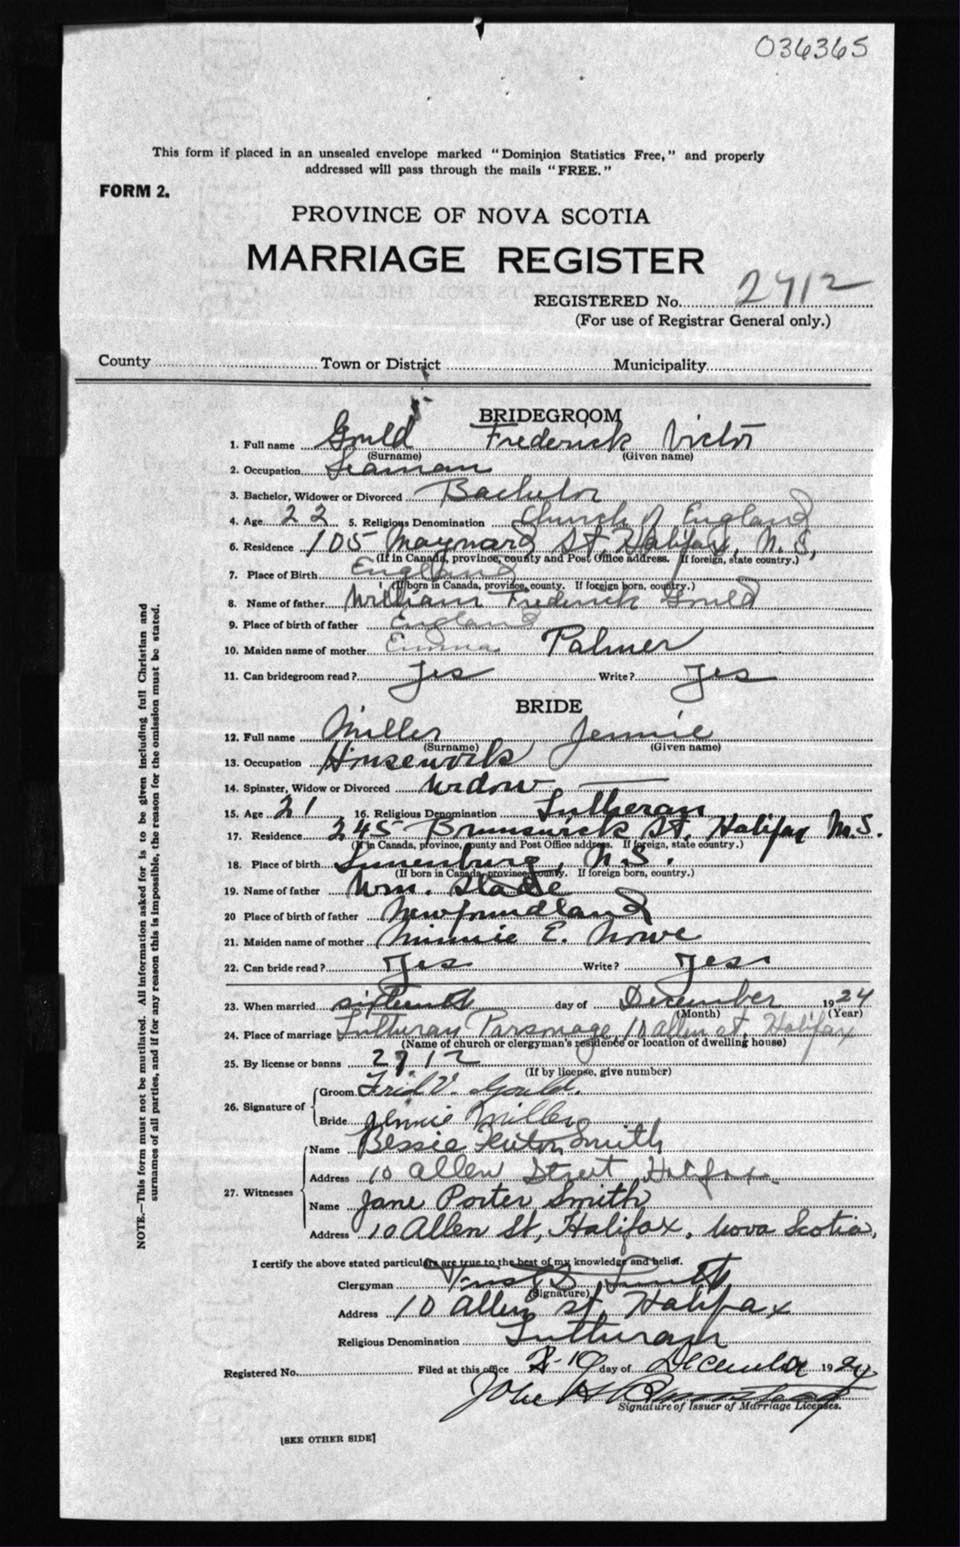 036365
This form if placed in an unsealed envelope marked "Dominion Statistics Free," and properly
addressed will pass through the mails "FREE."
FORM 2.
PROVINCE OF NOVA SCOTIA
MARRIAGE REGISTER
REGISTERED No. 2712
(For use of Registrar General only.)
County Town or District Municipality
BRIDEGROOM
1. Full name Gould Frederick Victor
(Surname) (Given name)
2. Occupation Seaman
3. Bachelor, Widower or Divorced Bachelor
4. Age 22 5. Religious Denomination Church of England
6. Residence 105 Maynard St, Halifax, N.S.
(If in Canada, province, county and Post Office address. If foreign, state country.)
7. Place of Birth England
(If born in Canada, province, county. If foreign born, country.)
8. Name of father William Frederick Gould
9. Place of birth of father England
10. Maiden name of mother Emma Palmer
11. Can bridegroom read? Yes Write? Yes
BRIDE
12. Full name Miller Jennie
(Surname) (Given name)
13. Occupation Housework
14. Spinster, Widow or Divorced Widow
15. Age 21 16. Religious Denomination Lutheran
17. Residence 245 Brunswick St. Halifax N.S.
(If in Canada, province, county and Post Office address. If foreign, state country.)
18. Place of birth Lunenburg, N.S.
(If born in Canada, province, county. If foreign born, country.)
19. Name of father Wm. Slade
20 Place of birth of father Newfoundland
21. Maiden name of mother Minnie E. Nowe
22. Can bride read? Yes Write? Yes
23. When married sixteenth day of December 1924
(Month) (Year)
24. Place of marriage Lutheran Parsonage, 10 Allen St, Halifax
(Name of church or clergyman's residence or location of dwelling house)
25. By license or banns 2712
(If by license, give number)
26. Signature of Groom Fred V. Gould.
Bride Jennie Miller
27. Witnesses Name Bessie Smith
Address 10 Allen Street Halifax.
Name Jane Porter Smith
Address 10 Allen St, Halifax, Nova Scotia,
I certify the above stated particulars are true to the best of my knowledge and belief.
Clergyman Smith
(Signature)
Address 10 Allen St, Halifax
Religious Denomination Lutheran
Registered No. Filed at this office 19 day of December 1924
Signature of Issuer of Marriage Licenses.
[SEE OTHER SIDE]
NOTE.—This form must not be mutilated. All information asked for is to be given including full Christian and
surnames of all parties, and if for any reason this is impossible, the reason for the omission must be stated.